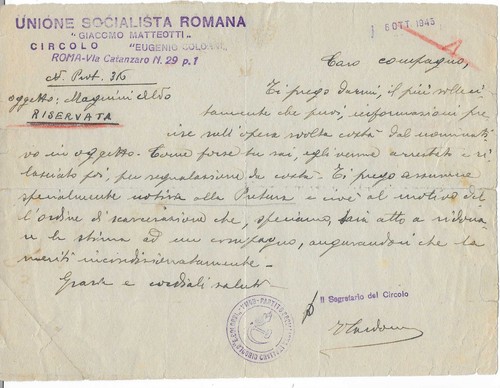 UNIONE SOCIALISTA ROMANA
"GIACOMO MATTEOTTI"
CIRCOLO "EUGENIO COLORNI"
ROMA-Via Catanzaro N. 29 p.1
6 OTT. 1945
N. Prot. 316
oggetto: Magnini Aldo
RISERVATA
Caro compagno,
Ti prego darmi, il più solleci-
tamente che puoi, informazioni pre-
cise sull'opera svolta costà dal nominati-
vo in oggetto. Come forse tu sai, egli venne arrestato e ri-
lasciato poi, per segnalazione da costà. Ti prego assumere
specialmente notizia alla Pretura e cioè al motivo del-
l'ordine di scarcerazione che, speriamo, sia atto a ridona-
re la stima ad un compagno, augurandoci che la
meriti incondizionatamente.-
Grazie e cordiali saluti
Il Segretario del Circolo